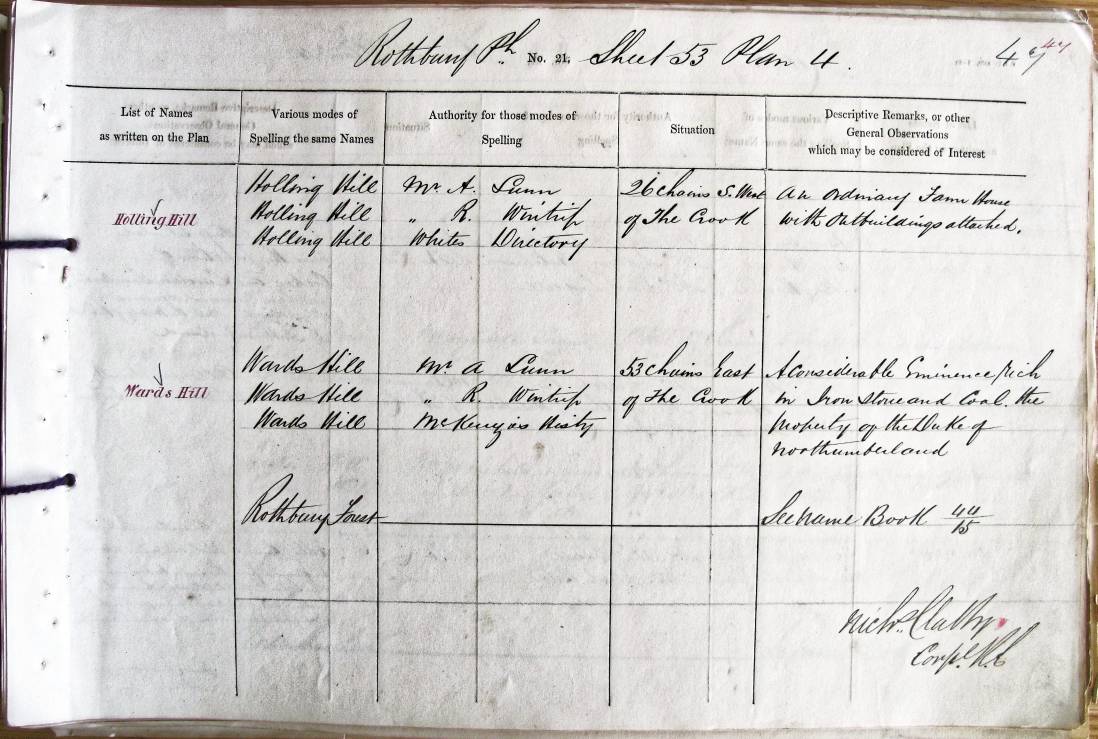 Rothbury Ph No. 21. Sheet 53 Plan 4. 47
List of Names
as written on the Plan
Various modes of
Spelling the same Names
Authority for those modes of
Spelling
Situation
Descriptive Remarks, or other
General Observations
which may be considered of Interest
Holling Hill
Holling Hill
Holling Hill
Holling Hill
Mr A. Lunn
„ R. Wintrip
Whites Directory
26 chains S. West
of The Crook
An ordinary Farm House
with Outbuildings attached.
Wards Hill
Wards Hill
Wards Hill
Wards Hill
Mr A Lunn
„ R. Wintrip
McKenzies Histy
53 chains East
of The Crook
A Considerable Eminence, rich
in Iron Stone and Coal. the
property of the Duke of
Northumberland
Rothbury Forest
See Name Book 44/15
Corpl. R.E